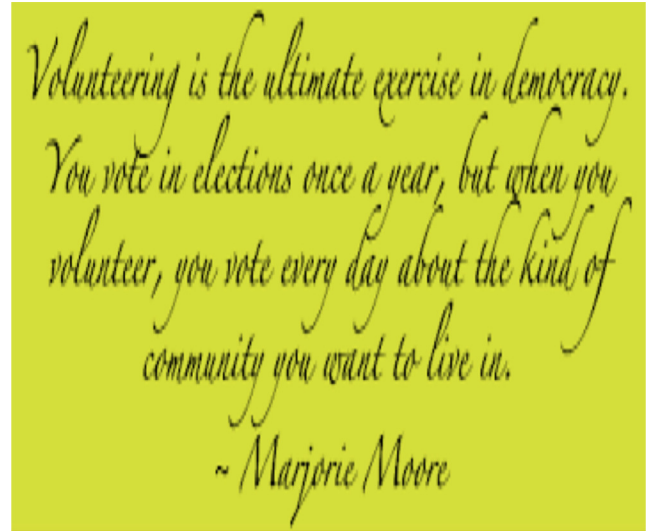 Volunteering is the ultimate exercise in democracy.
You vote in elections once a year, but when you
volunteer, you vote every day about the kind of
community you want to live in.
~ Marjorie Moore